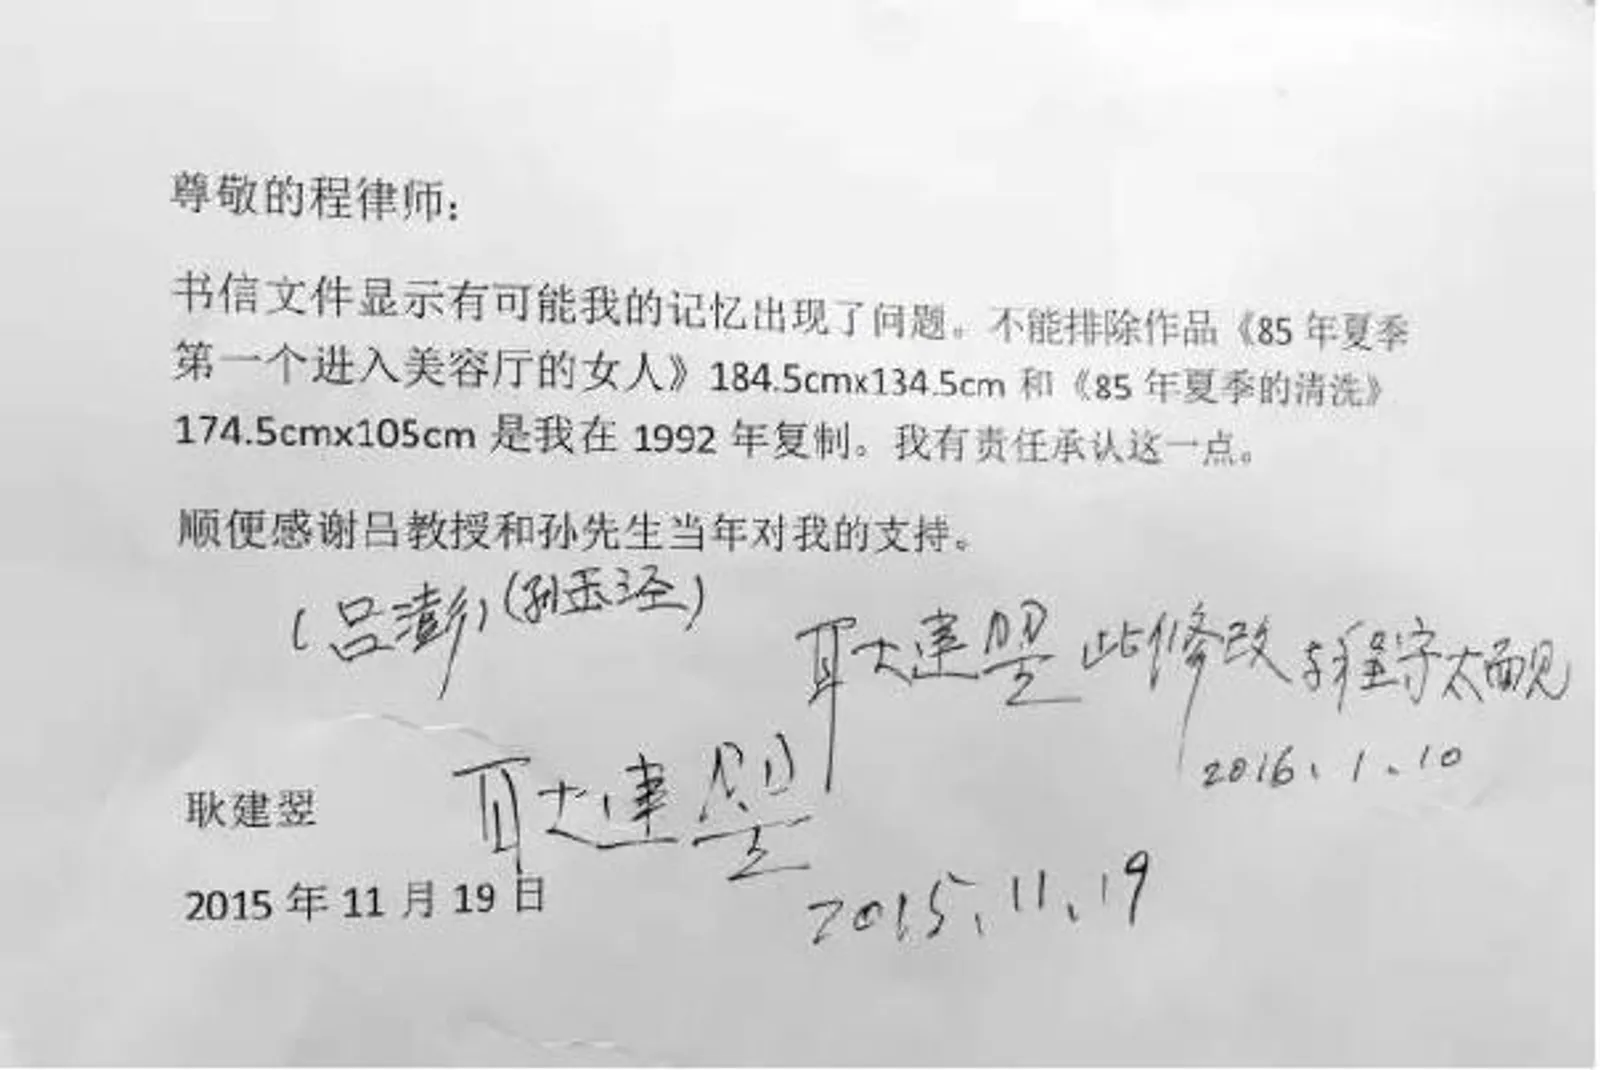 尊敬的程律师：
书信文件显示有可能我的记忆出现了问题。不能排除作品《85 年夏季
第一个进入美容厅的女人》184.5cmx134.5cm 和《85 年夏季的清洗》
174.5cmx105cm 是我在 1992 年复制。我有责任承认这一点。
顺便感谢吕教授和孙先生当年对我的支持。
(吕澎)(孙玉泾)
耿建翌 此修改 与程守太面见
2016.1.10
耿建翌 耿建翌
2015 年 11 月 19 日 2015.11.19